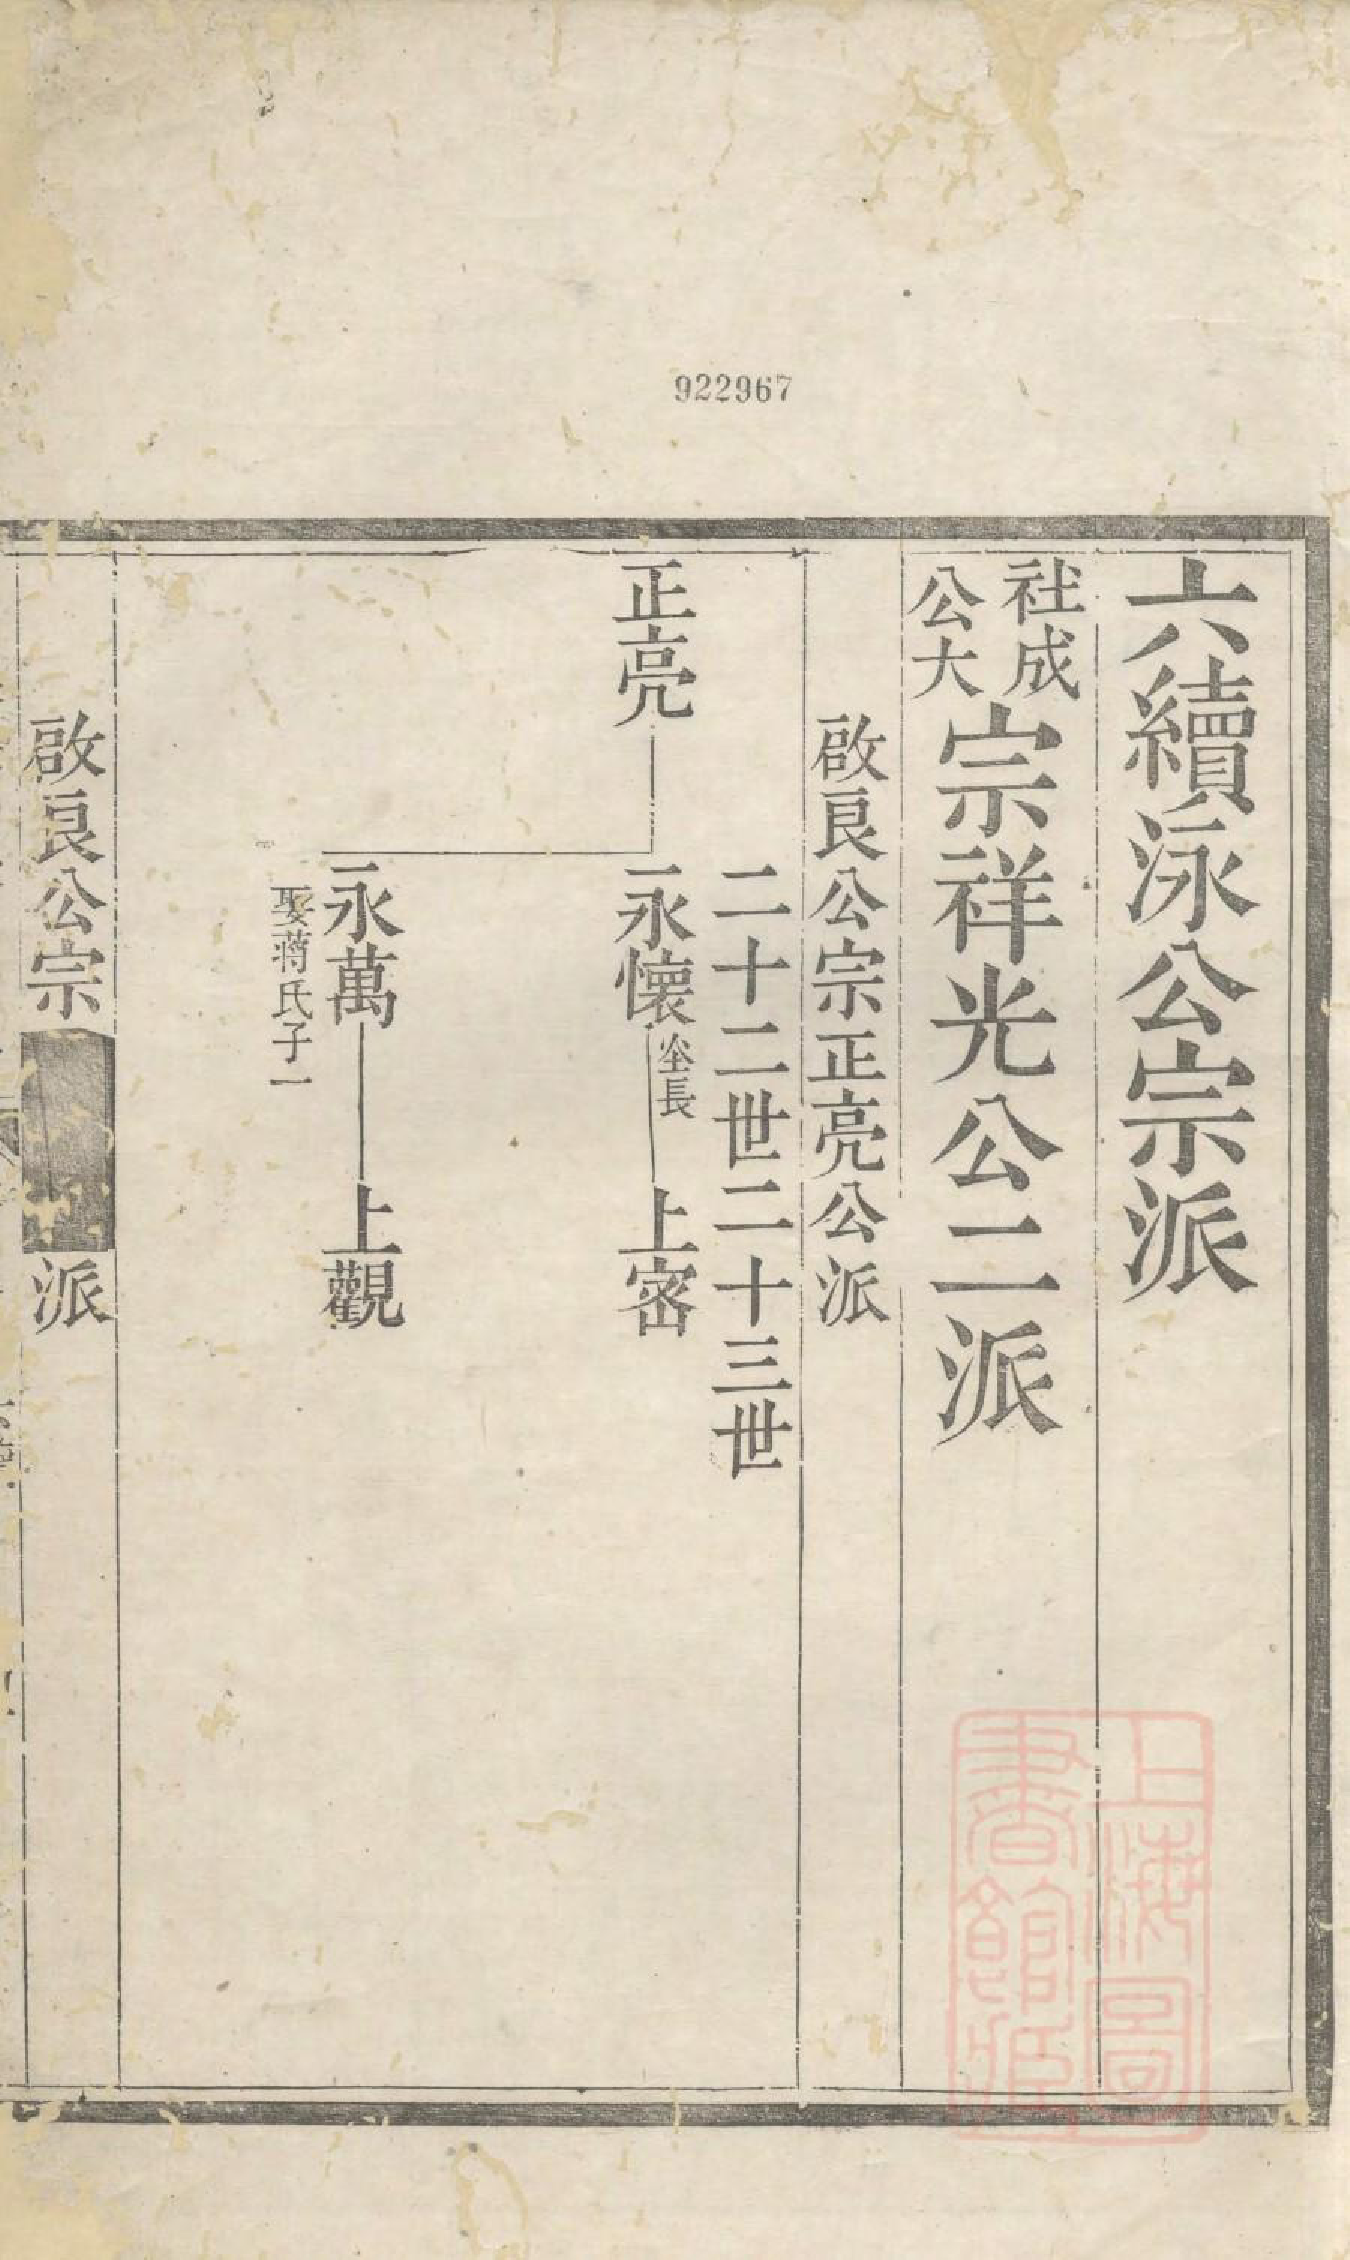 922967
六續泳公宗派
社成
公大
宗祥光公二派
啟良公宗正亮公派
二十二世二十三世
正亮
永懷
長
上密
永萬
上觀
娶蔣氏子一
啟良公宗
派
上海圖
書館藏